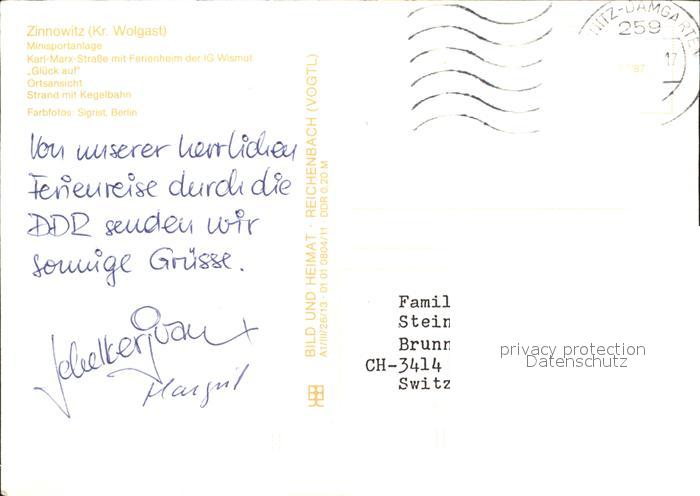 Zinnowitz (Kr. Wolgast)
Minisportanlage
Karl-Marx-Straße mit Ferienheim der IG Wismut
„Glück auf"
Ortsansicht
Strand mit Kegelbahn
Farbfotos: Sigrist, Berlin
Von unserer herrlichen
Ferienreise durch die
DDR senden wir
sonnige Grüsse.
Margrit
BILD UND HEIMAT · REICHENBACH (VOGTL)
A1/III/26/13 · 01 01 0804/11 DDR 0,20 M
NITZ-DAMGARTEN
259
17
Famil
Stein
Brunn
CH-3414
Switz
privacy protection
Datenschutz